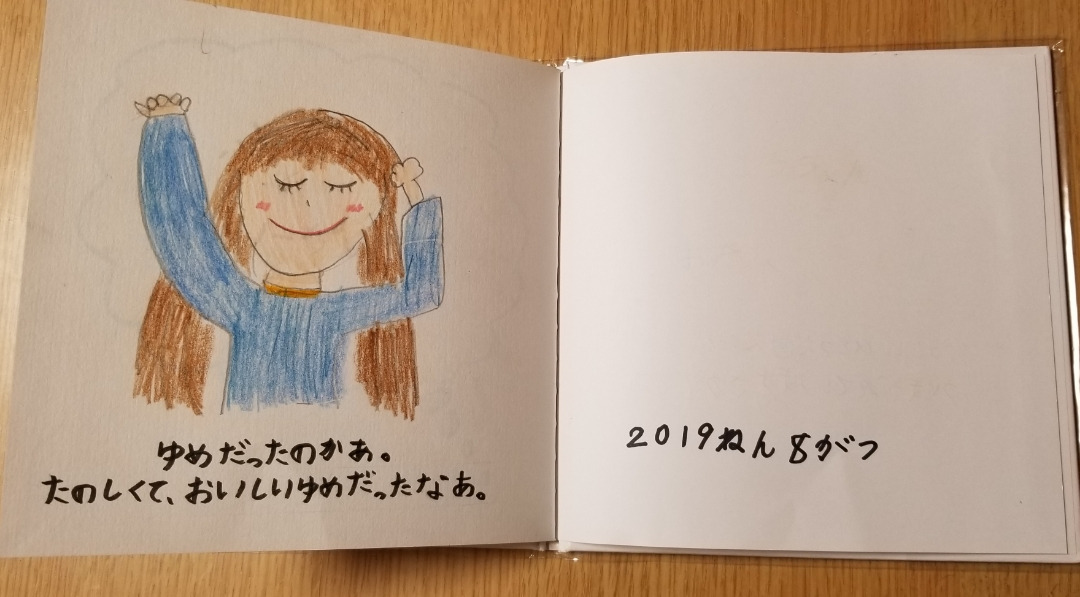 ゆめだったのかあ。
たのしくて、おいしいゆめだったなあ。
2019ねん8がつ